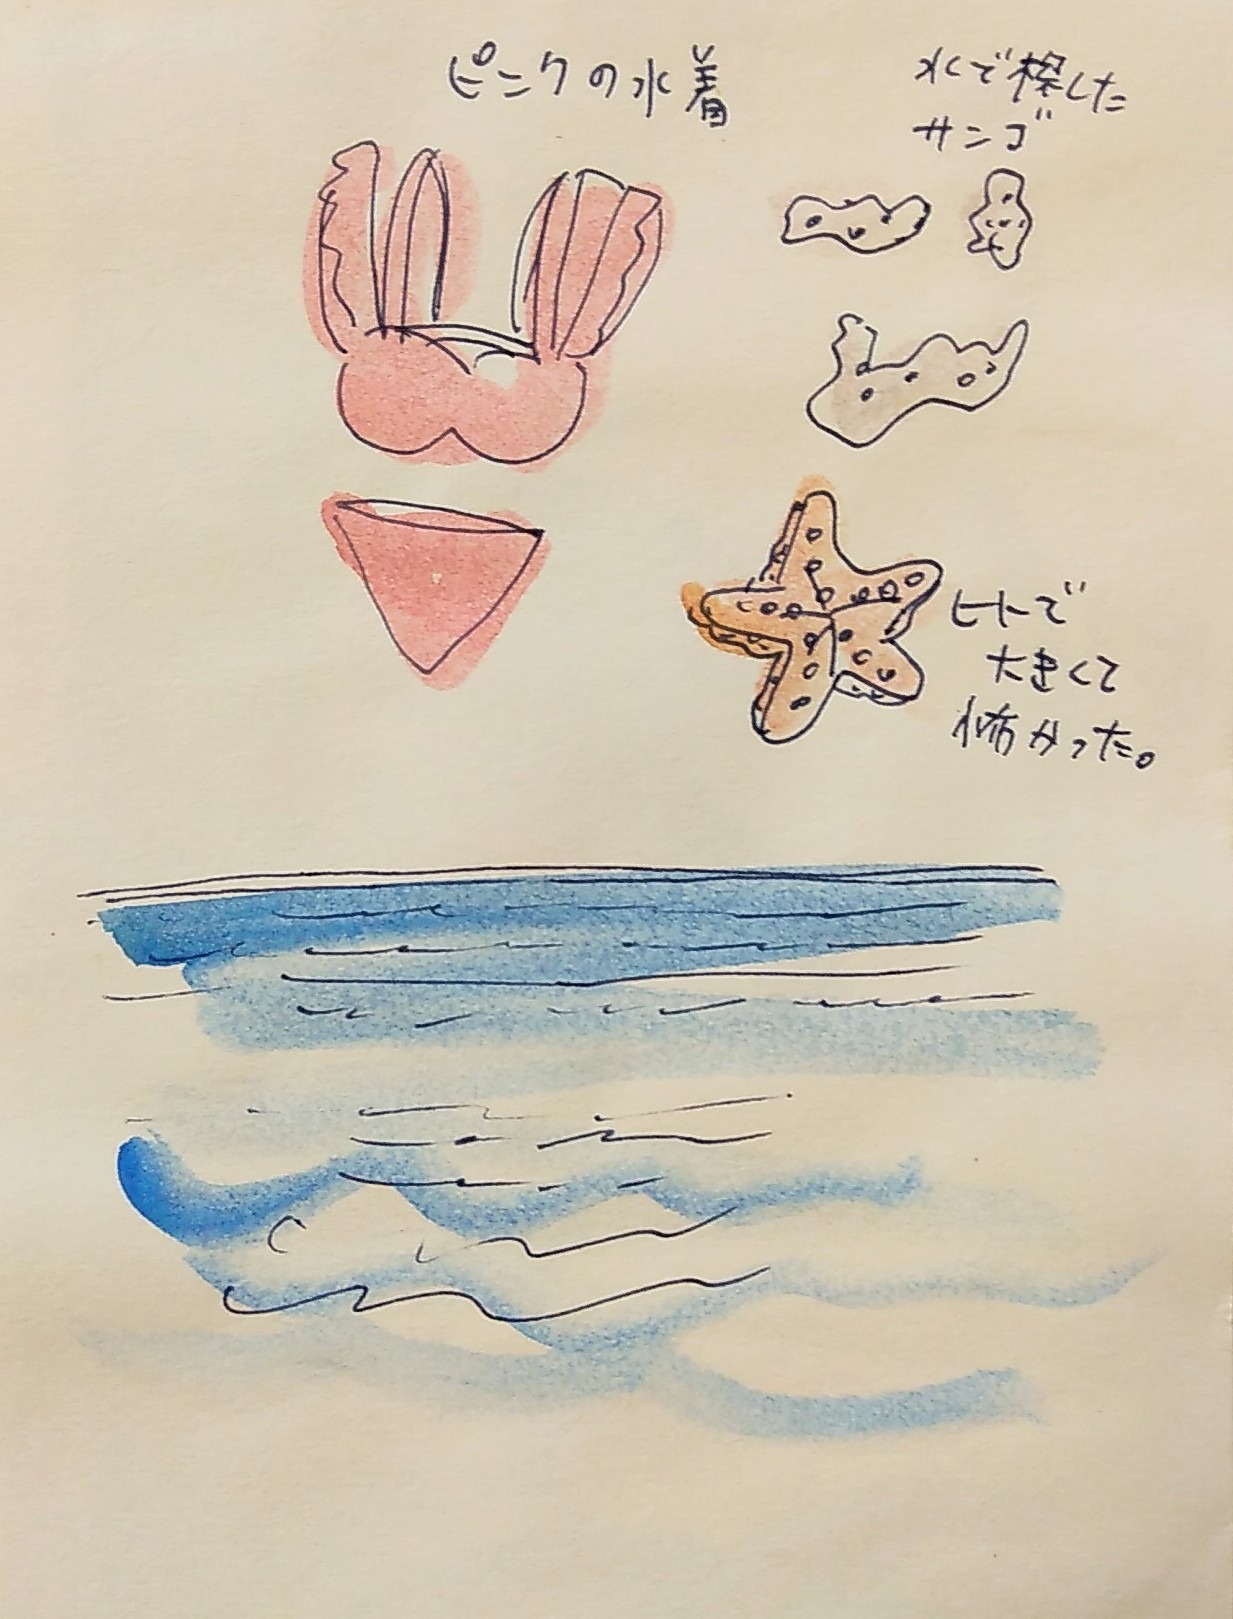 ピンクの水着
水で探した
サンゴ
ヒトで
大きくて
怖かった。